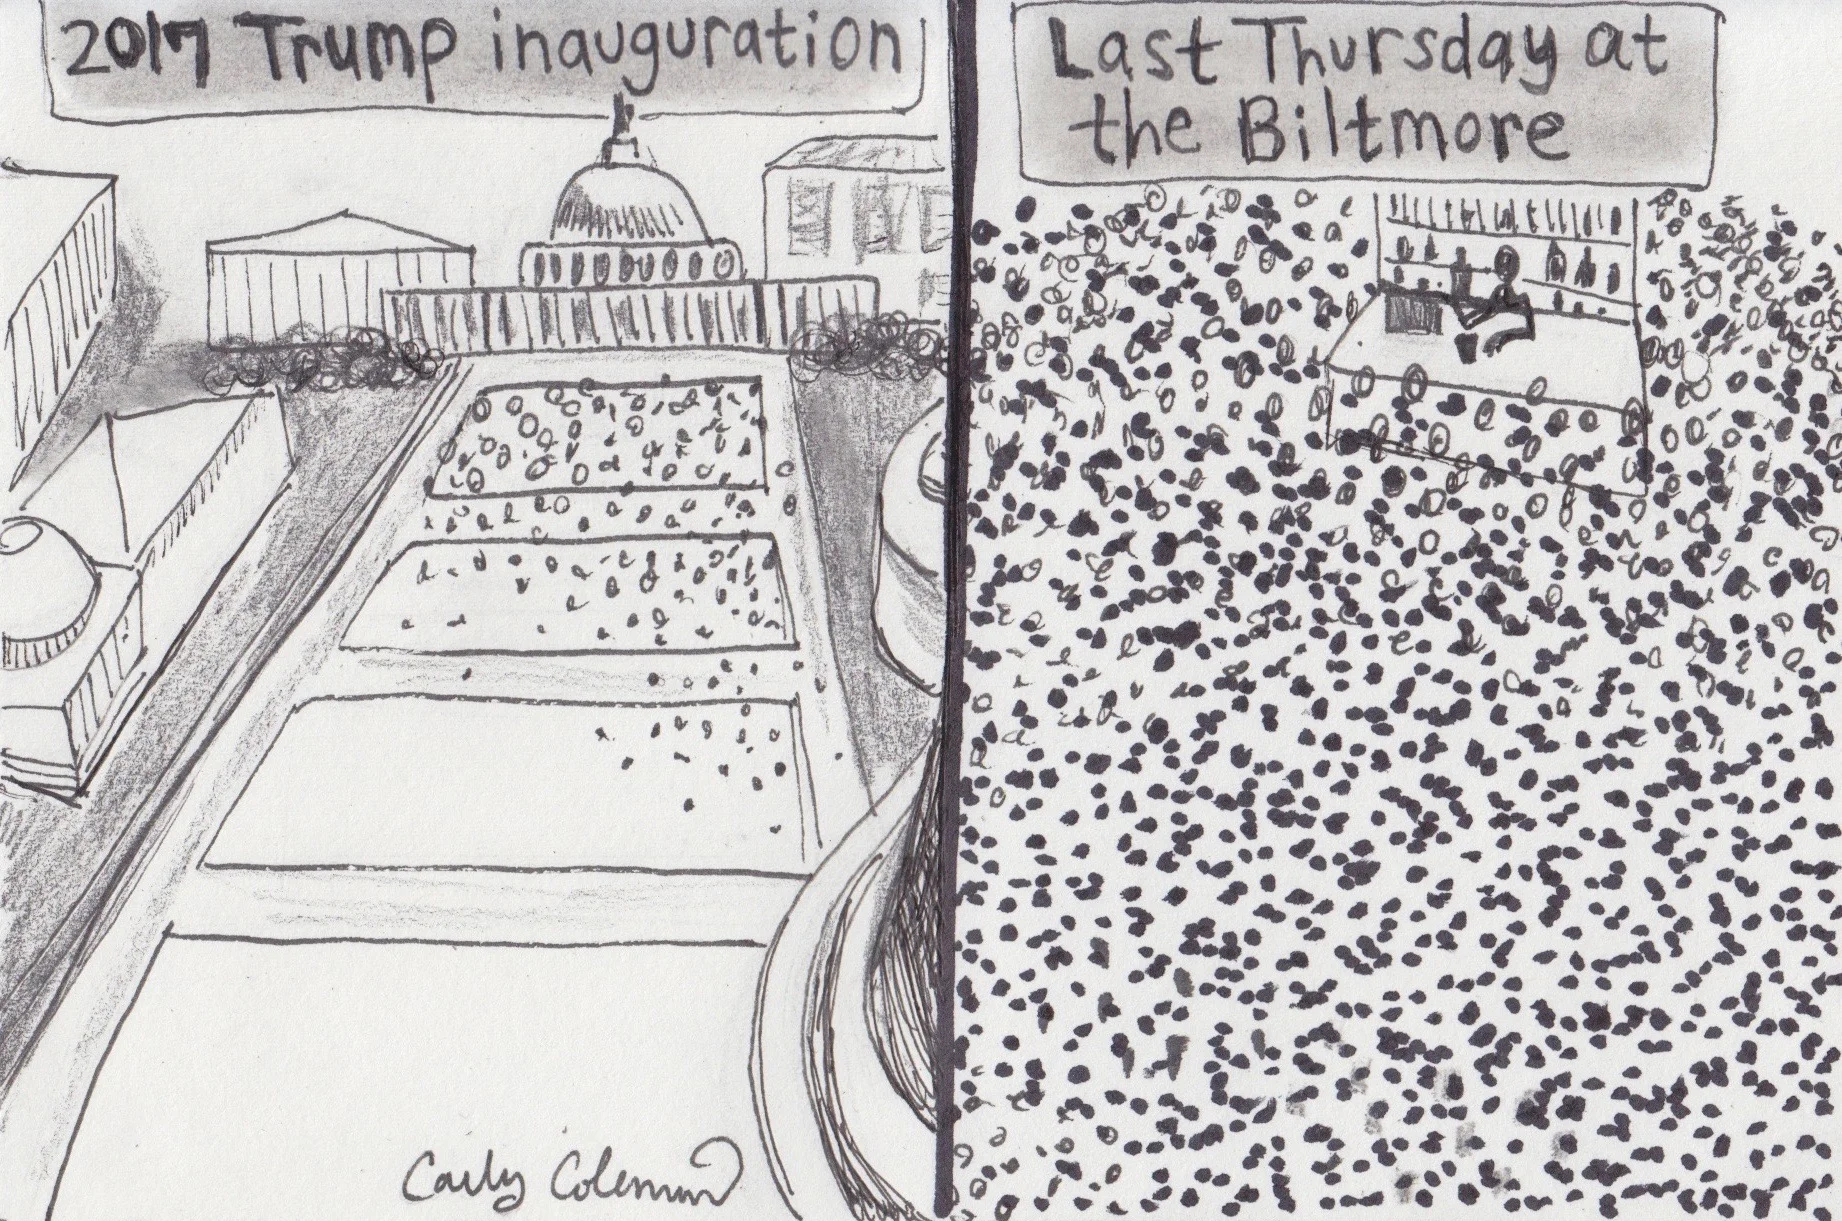 2017 Trump inauguration
Last Thursday at
the Biltmore
Carly Coleman